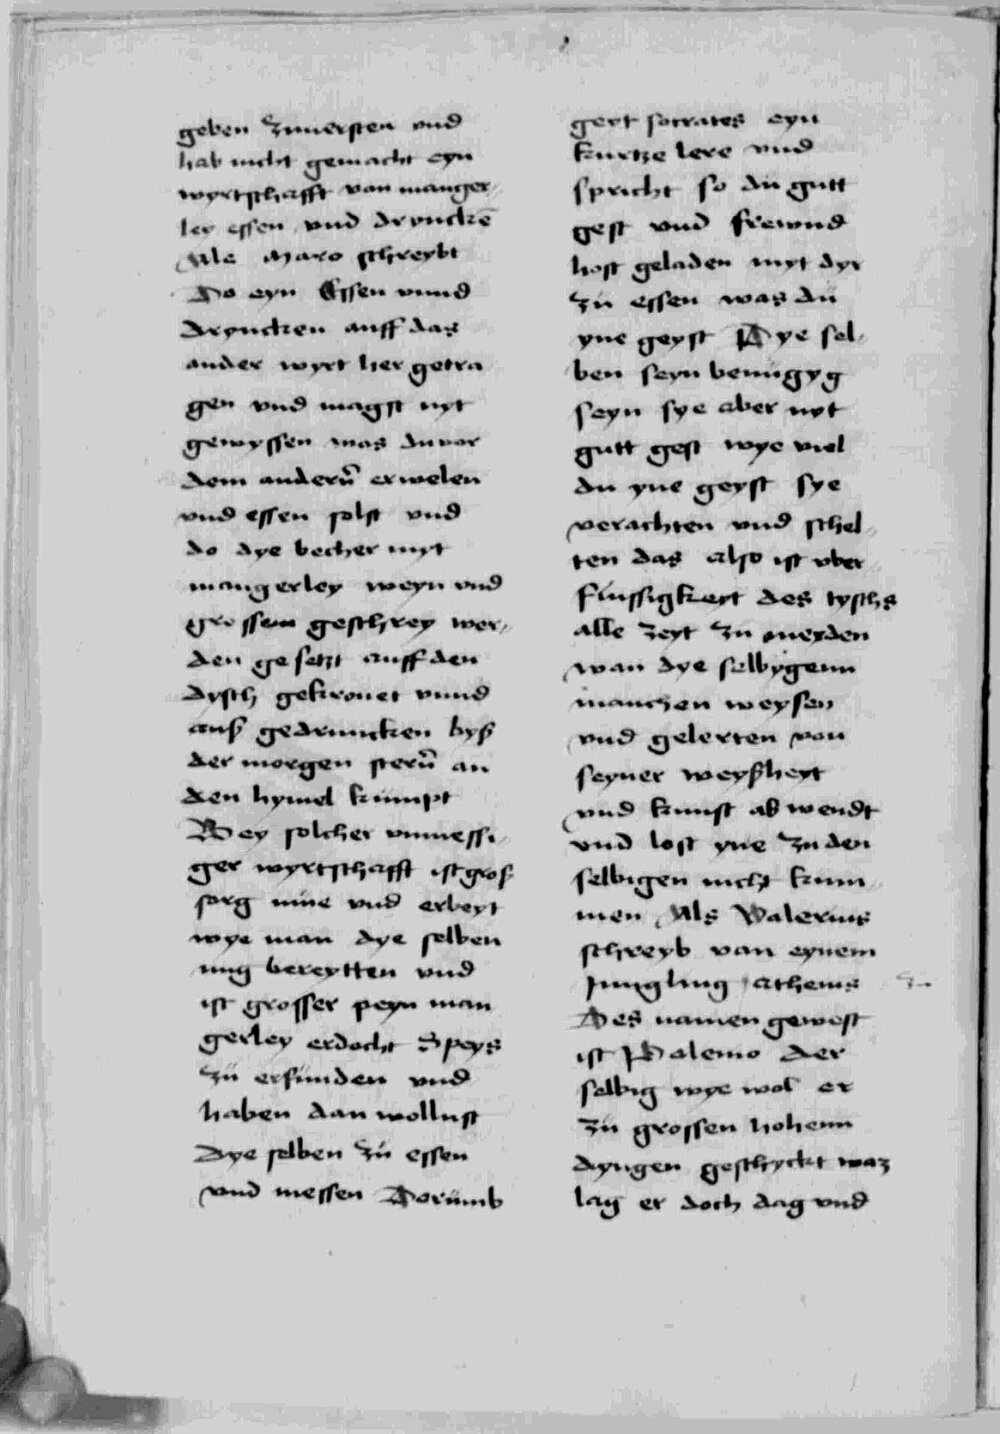 geben zuuersten vnd
hab nicht gemacht eyn
wyrtschafft von manger-
ley essen vnd druncken̄
Als maro schreybt
Do eyn Essen vnnd
dryncken auff das
ander wyrt her getra
gen vnd magst nyt
gewyssen was du vor
dem andern̄ erwelen
vnd essen solst vnd
do dye becher myt
mangerley weyn vnd
grossem geschrey wer-
den gesetzt auff den
dysch gekronet vnnd
auß gedruncken byß
der morgen stern̄ an
den hymel kumpt
Bey solcher vnmessi-
ger wyrtschafft ist groß
sorg mue vnd erbeyt
wye man dye selben
mug bereytten vnd
ist grosser peyn man
gerley erdocht Speys
zü erfunden vnd
haben dan wollust
dye selben zü essen
vnd messen Dorümb
gert socrates eyn
kurtze lere vnd
spricht so dü gutt
gest vnd frewnd
host geladen myt dyr
zü essen was dü
yne geyst Dye sel-
ben seyn benügyg
seyn sye aber nyt
gutt gest wye viel
du yne geyst sye
verachten vnd schel-
ten das also ist vber-
flussigkeit des tyschs
alle zeyt zu meyden
wan dye selbygenn
manchen weysen
vnd gelerten von
seyner weyßheyt
vnd kunst ab wendt
vnd lost yne zu den
selbigen nicht kum-
men Als Valerius
schreyb van eynem
Jungling athenis
Des namen gewest
ist Palemo der
selbig wye wol er
zü grossen hohenn
dyngen geschyckt waz
lag er doch dag vnd